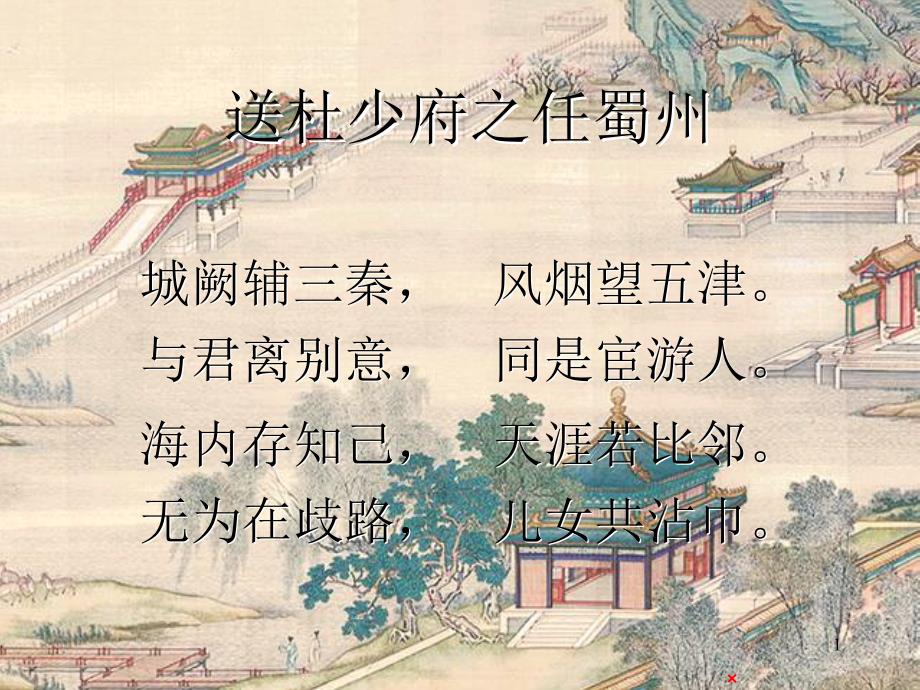 送杜少府之任蜀州
城阙辅三秦， 风烟望五津。
与君离别意， 同是宦游人。
海内存知己， 天涯若比邻。
无为在歧路， 儿女共沾巾。
1